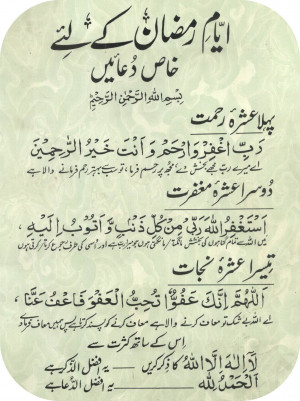 ایّامِ رمضان کے لئے
خاص دُعائیں
بِسْمِ اللهِ الرَّحْمٰنِ الرَّحِيْمِ
پہلا عشرۂ رحمت
رَبِّ اغْفِرْ وَارْحَمْ وَاَنْتَ خَيْرُ الرّٰحِمِيْنَ
اے میرے رب مجھے بخش دے مجھ پر رحم فرما، تو سب سے بہتر رحم فرمانے والا ہے
دُوسرا عشرۂ مغفرت
اَسْتَغْفِرُ اللهَ رَبِّىْ مِنْ كُلِّ ذَنْۢبٍ وَّاَتُوْبُ اِلَيْهِ
میں اللہ سے تمام گناہوں کی بخشش مانگتا/مانگتی ہوں جو میرا رب ہے اور اُسی کی طرف رجوع کرتا/کرتی ہوں
تیسرا عشرۂ نجات
اَللّٰهُمَّ اِنَّكَ عَفُوٌّ تُحِبُّ الْعَفْوَ فَاعْفُ عَنَّا
اے اللہ بے شک تو معاف کرنے والا ہے معاف کرنے کو پسند کرتا ہے پس ہمیں معاف فرما دے
اِس کے ساتھ کثرت سے
لَآ اِلٰهَ اِلَّا اللهُ کا ذکر کریں — یہ افضل الذّکر ہے
اَلْحَمْدُ لِلّٰهِ — یہ افضل الدُّعا ہے